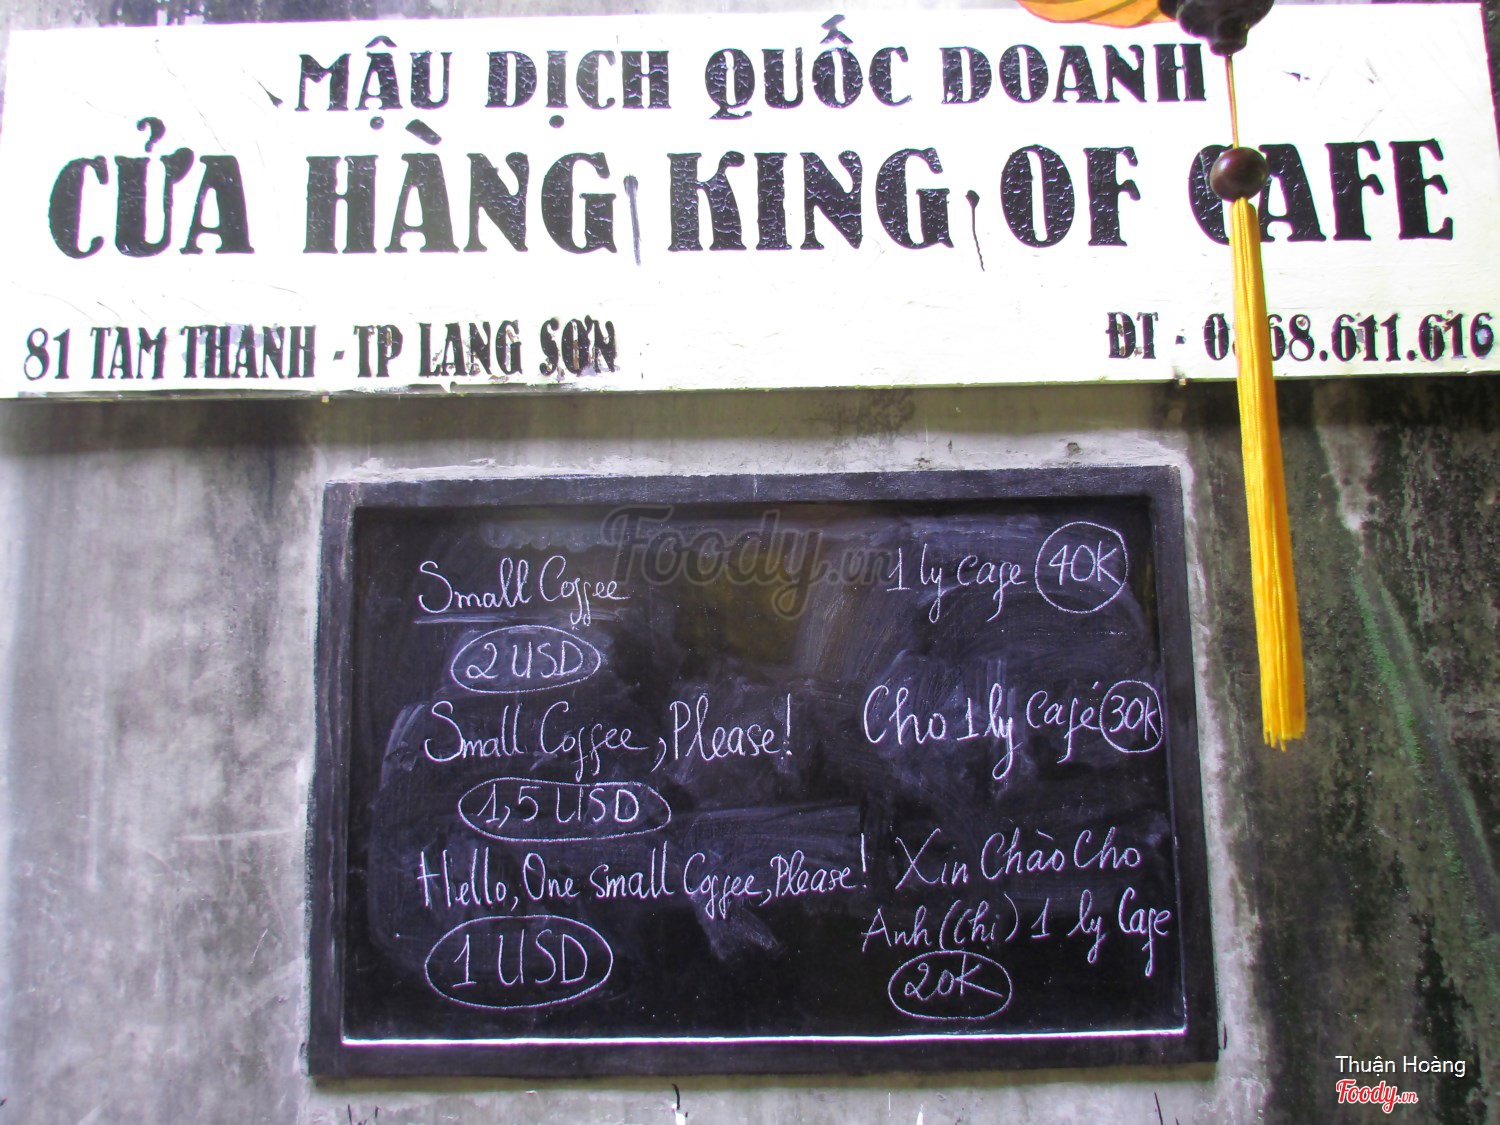 MẬU DỊCH QUỐC DOANH
CỬA HÀNG KING OF CAFE
81 TAM THANH - TP LẠNG SƠN
ĐT - 0 68.611.616
Foody.vn
Small Coffee
2 USD
Small Coffee, Please!
1,5 USD
Hello, One small Coffee, Please!
1 USD
1 ly cafe 40K
Cho 1 ly Café 30K
Xin Chào Cho
Anh (Chị) 1 ly Cafe
20K
Thuận Hoàng
Foody.vn